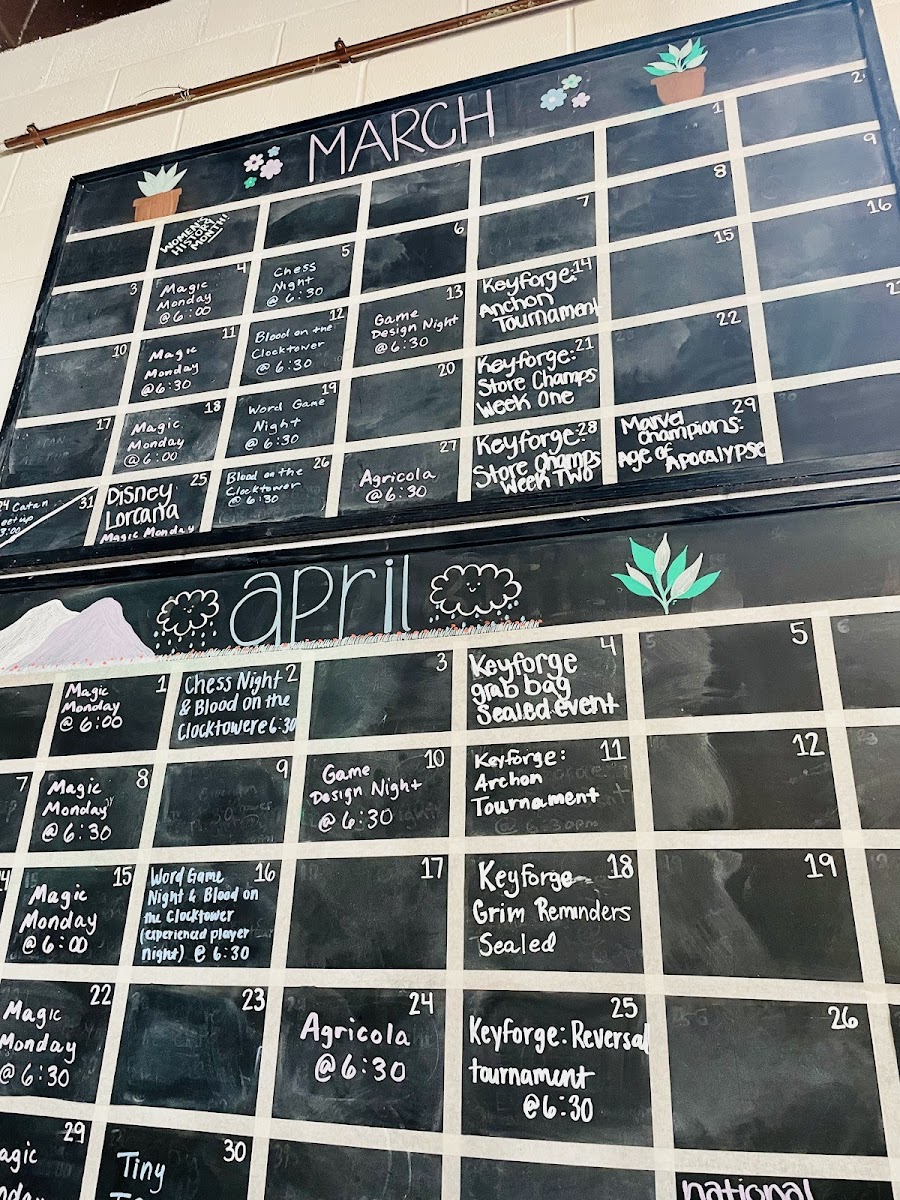 MARCH
1
2
WOMEN'S
HISTORY
MONTH!
3
4
Magic
Monday
@6:00
5
Chess
Night
@ 6:30
6
7
8
9
10
11
Magic
Monday
@6:30
12
Blood on the
Clocktower
@ 6:30
13
Game
Design Night
@6:30
14
Keyforge:
Archon
Tournament
15
16
17
18
Magic
Monday
@ 6:00
19
Word Game
Night
@ 6:30
20
21
Keyforge:
Store Champs
Week One
22
24 Catan
31
25
Disney
Lorcana
Magic Monday
26
Blood on the
Clocktower
@ 6:30
27
Agricola
@6:30
28
Keyforge:
Store Champs
Week Two
29
Marvel
Champions:
Age of
Apocalypse
april
1
Magic
Monday
@ 6:00
2
Chess Night
& Blood on the
Clocktowere 6:30
3
4
Keyforge
grab bag
Sealed event
5
7
8
Magic
Monday
@ 6:30
9
10
Game
Design Night
@ 6:30
11
Keyforge:
Archon
Tournament
12
15
Magic
Monday
@ 6:00
16
Word Game
Night & Blood on
the Clocktower
(experienced player
night) @ 6:30
17
18
Keyforge
Grim Reminders
Sealed
19
22
Magic
Monday
@ 6:30
23
24
Agricola
@6:30
25
Keyforge: Reversal
tournament
@6:30
26
29
30
Tiny
national